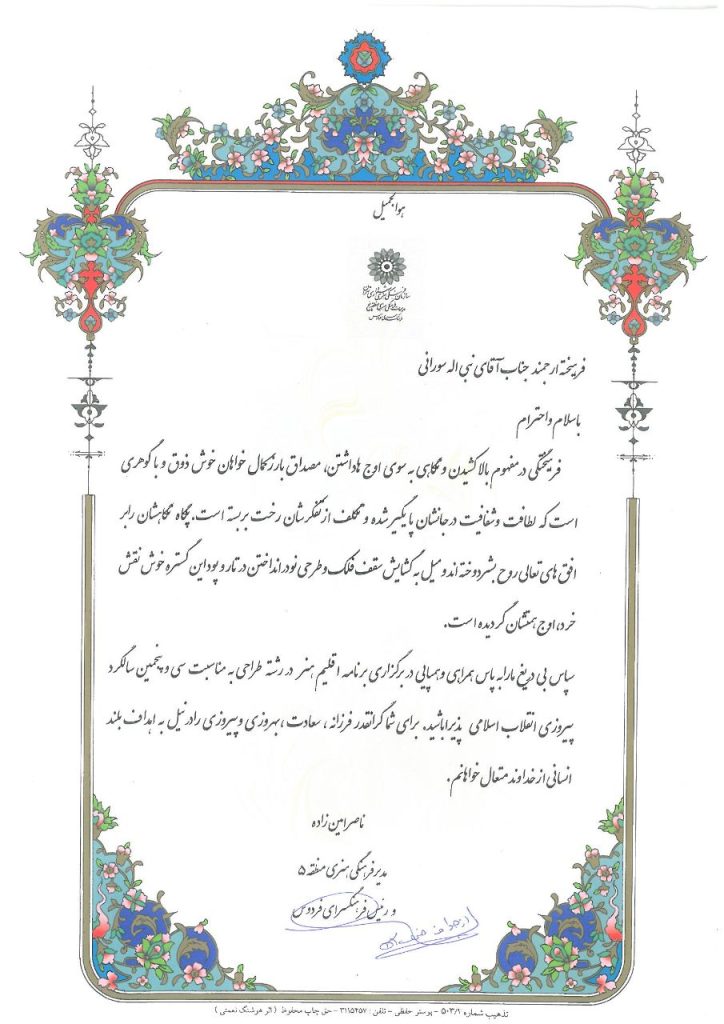 هوالجمیل
فریخته ارجمند جناب آقای نبی اله سورانی
با سلام و احترام
فریختگی در مفهوم بالا کشیدن و نگاهی به سوی اوج ها داشتن، مصداق بارز کمال خواهان خوش ذوق و با گوهری
است که لطافت و شفافیت در جانشان پایگیر شده و تکلف از تفکرشان رخت بر بسته است. پگاه نگاهشان را بر
افق های تعالی روح بشر دوخته اند و میل به گشایش سقف فلک و طرحی نو در انداختن در تار و پود این گستره خوش نقش
خرد، اوج همتشان گردیده است.
سپاس بی دریغ ما را به پاس همراهی و همپایی در برگزاری برنامه اقلیم هنر در رشته طراحی به مناسبت سی و پنجمین سالگرد
پیروزی انقلاب اسلامی پذیرا باشید. برای شما گرانقدر فرزانه، سعادت، بهروزی و پیروزی را در نیل به اهداف بلند
انسانی از خداوند متعال خواهانم.
ناصر امین زاده
مدیر فرهنگی هنری منطقه ۵
و رئیس فرهنگسرای فردوس
تذهیب شماره ۵۰۳/۹ - پوستر حفظی - تلفن: ۳۱۱۵۲۵۷ - حق چاپ محفوظ (اثر هوشنگ نعمتی)